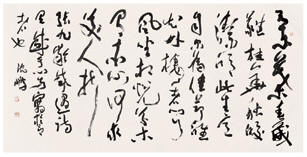 兰叶春葳
蕤桂华秋皎
洁欣欣此生意
自尔为佳节谁
知林栖者闻
风坐相悦草木
有本心何求
美人折
张九龄感遇诗